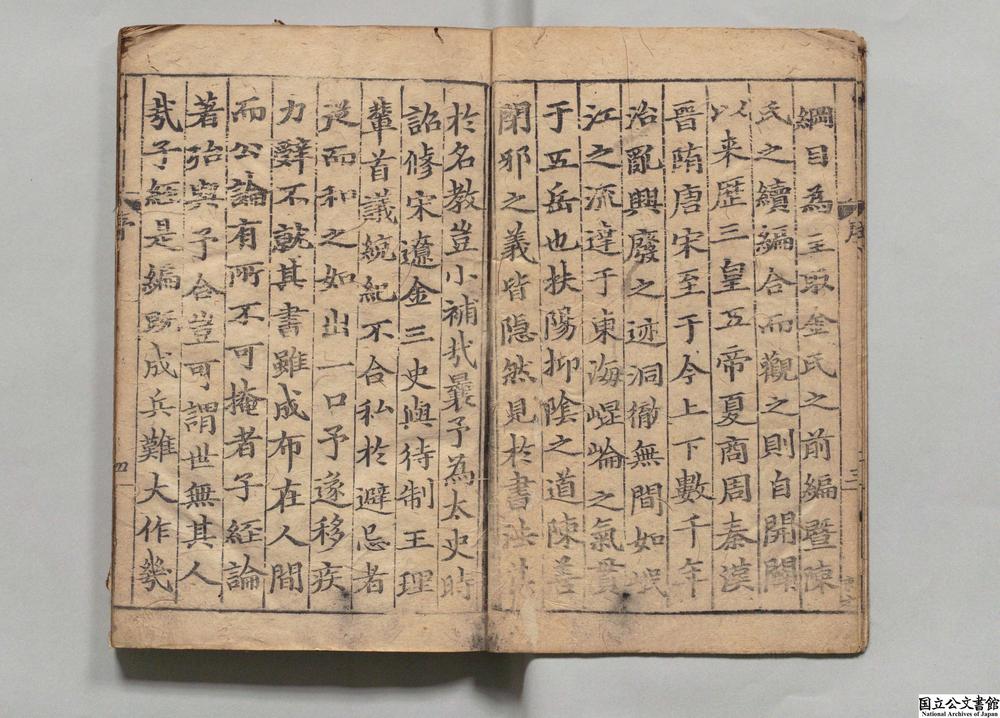 綱目為主取金氏之前編暨陳
氏之續編合而觀之則自開闢
以来歷三皇五帝夏商周秦漢
晉隋唐宋至于今上下數千年
治亂興廢之迹洞徹無間如岷
江之流達于東海崐崘之氣貫
于五岳也扶陽抑陰之道陳善
閉邪之義皆隐然見於書法
序
三
於名教豈小補㢤曩予為太史時
詔修宋遼金三史與待制王理
輩首議統紀不合私於避忌者
従而和之如出一口予遂移疾
力辭不就其書雖成布在人間
而公論有所不可掩者子經論
著殆與予合豈可謂世無其人
㢤子經是編既成兵難大作幾
序
四
国立公文書館
National Archives of Japan